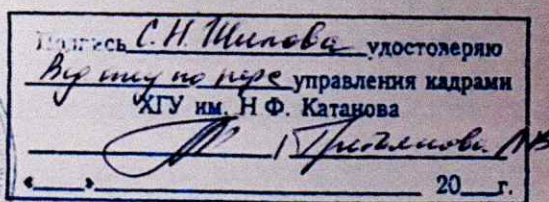 Подпись С.Н. Шилова удостоверяю
Вед инж по пере управления кадрами
ХГУ им. Н Ф. Катанова
« » 20 г.